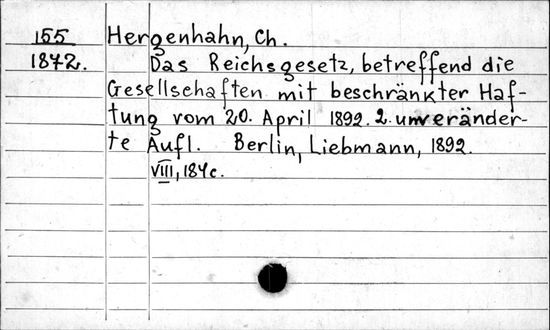 155
1872.
Hergenhahn, Ch.
Das Reichsgesetz, betreffend die
Gesellschaften mit beschränkter Haf-
tung vom 20. April 1892. 2. unveränder-
te Aufl. Berlin, Liebmann, 1892.
VIII, 184 c.